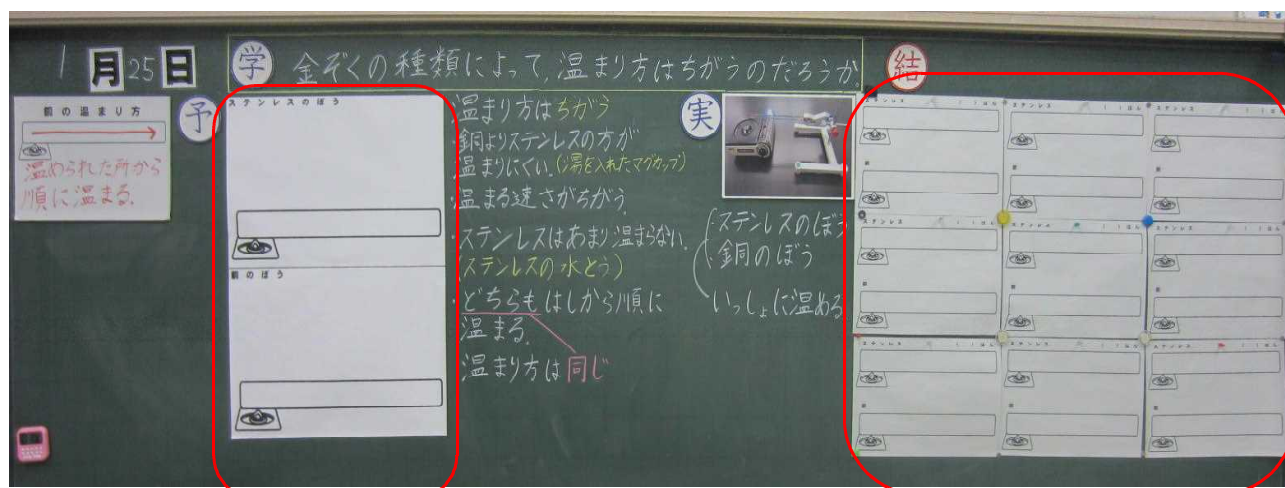 1月25日
学 金ぞくの種類によって、温まり方はちがうのだろうか
銅の温まり方
温められた所から
順に温まる。
予
ステンレスのぼう
銅のぼう
・温まり方はちがう
・銅よりステンレスの方が
温まりにくい。(湯を入れたマグカップ)
・温まる速さがちがう。
・ステンレスはあまり温まらない。
(ステンレスの水とう)
・どちらもはしから順に
温まる。
温まり方は同じ
実
・ステンレスのぼう
・銅のぼう
いっしょに温める
結
ステンレス
ステンレス
ステンレス
銅
銅
銅
ステンレス
ステンレス
ステンレス
銅
銅
銅
ステンレス
ステンレス
ステンレス
銅
銅
銅